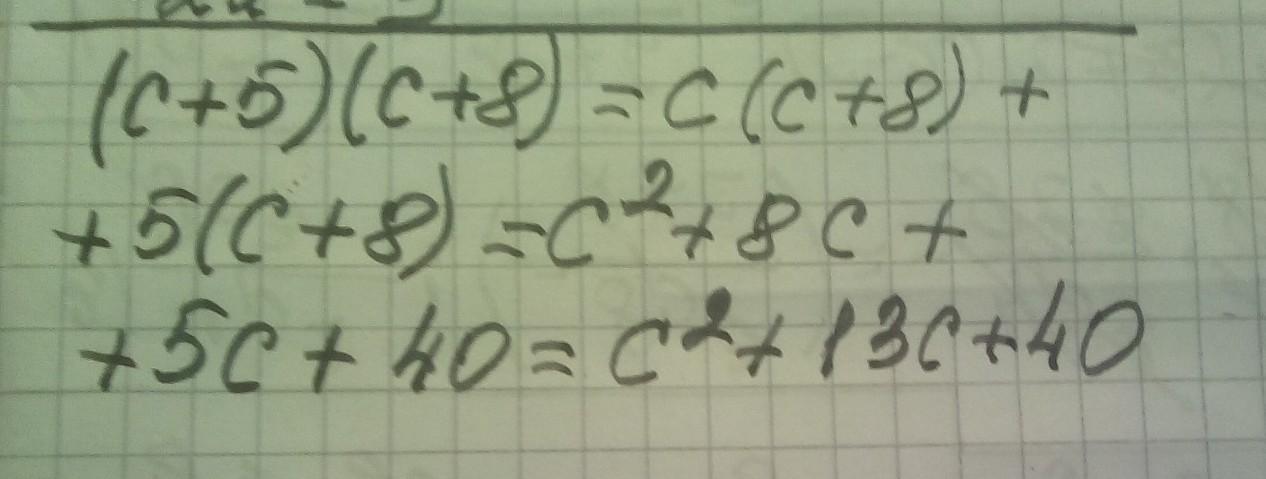 (c+5)(c+8)=c(c+8)+
+5(c+8)=c²+8c+
+5c+40=c²+13c+40